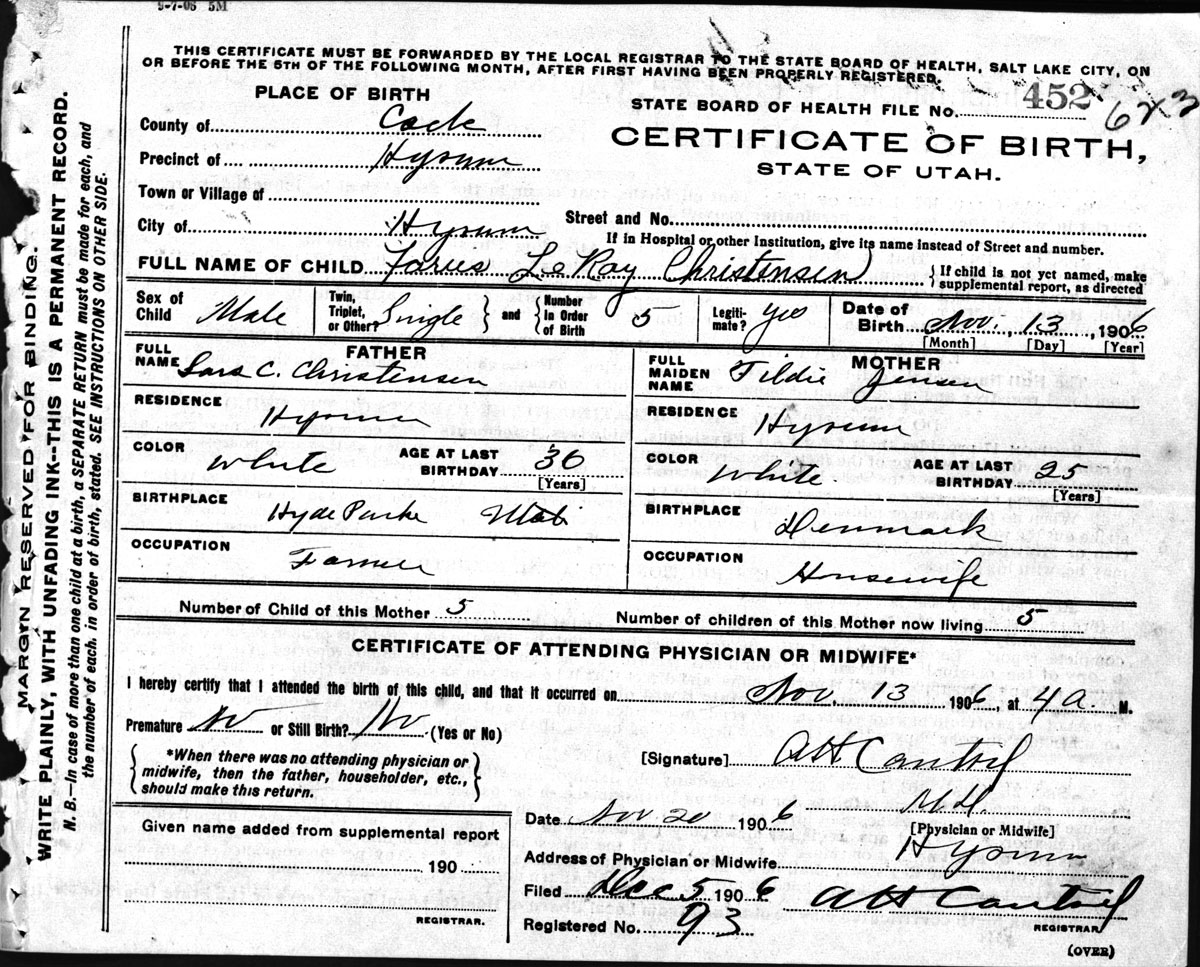 9-7-06 5M
THIS CERTIFICATE MUST BE FORWARDED BY THE LOCAL REGISTRAR TO THE STATE BOARD OF HEALTH, SALT LAKE CITY, ON
OR BEFORE THE 5TH OF THE FOLLOWING MONTH, AFTER FIRST HAVING BEEN PROPERLY REGISTERED.
PLACE OF BIRTH
STATE BOARD OF HEALTH FILE No. 452
CERTIFICATE OF BIRTH,
STATE OF UTAH.
County of
Precinct of Hyrum
Town or Village of
City of Hyrum
Street and No.
If in Hospital or other Institution, give its name instead of Street and number.
FULL NAME OF CHILD LeRay Christensen
If child is not yet named, make
supplemental report, as directed
Sex of Child Male
Twin, Triplet, or Other? Single and Number In Order of Birth 5
Legiti-mate? yes
Date of Birth Nov. 13, 1906
[Month] [Day] [Year]
FATHER
FULL NAME Lars C. Christensen
RESIDENCE
Hyrum
COLOR
White
AGE AT LAST BIRTHDAY 36
[Years]
BIRTHPLACE
Hyde Parke Utah
OCCUPATION
Farmer
MOTHER
FULL MAIDEN NAME Tildie Jensen
RESIDENCE
Hyrum
COLOR
White
AGE AT LAST BIRTHDAY 25
[Years]
BIRTHPLACE
Denmark
OCCUPATION
Housewife
Number of Child of this Mother 5
Number of children of this Mother now living 5
CERTIFICATE OF ATTENDING PHYSICIAN OR MIDWIFE*
I hereby certify that I attended the birth of this child, and that it occurred on Nov. 13 1906, at 4 a. M.
Premature No or Still Birth? No (Yes or No)
*When there was no attending physician or
midwife, then the father, householder, etc.,
should make this return.
[Signature]
[Physician or Midwife]
Date Nov 20 1906
Address of Physician or Midwife Hyrum
Filed Dec 5 1906
REGISTRAR.
Registered No. 93
(OVER)
Given name added from supplemental report
190
REGISTRAR.
MARGIN RESERVED FOR BINDING.
WRITE PLAINLY, WITH UNFADING INK--THIS IS A PERMANENT RECORD.
N. B.—In case of more than one child at a birth, a SEPARATE RETURN must be made for each, and
the number of each. in order of birth, stated. SEE INSTRUCTIONS ON OTHER SIDE.